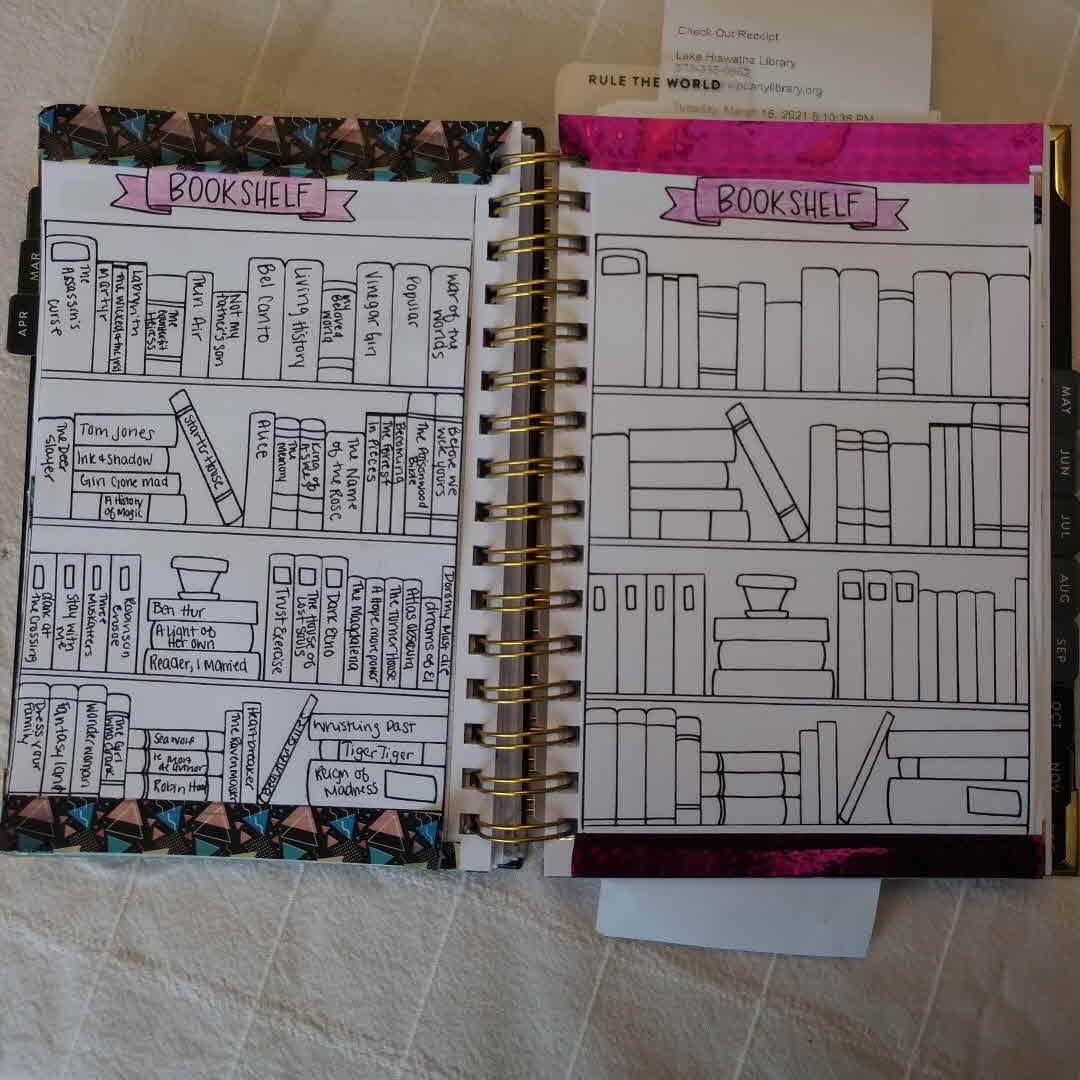 Check Out Receipt
Lake Hiawatha Library
RULE THE WORLD
Tuesday, March 16, 2021
BOOKSHELF
MAR
APR
The
Assassin's
Curse
Martyr
Labyrinth
The
Heiress
Thin Air
Not my
father's son
Bel Canto
Living History
My
Beloved
World
Vinegar Girl
Popular
War of the
Worlds
The Deer
Slayer
Tom Jones
Ink & Shadow
Girl Gone mad
A History
of Magic
Starter House
Alice
The
Memory
King
The Name
of the Rose
in Pieces
The Forrest
Becoming
The Poisonwood
Bible
Before we
were yours
Dark at
the Crossing
Stay with
me
Three
Musketeers
Robinson
Crusoe
Ben Hur
A Light of
Her own
Reader, I Married
Trust Exercise
The House of
Lost Souls
Dark Echo
The Magdalena
A Hope more power
The Turner House
Atlas Obscura
dreams of El
Dorothy Must die
Dress your
Family
Fantasy land
Wonderwoman
The Girl
who drank
Sea Wolf
le Mort
de author
Robin Hood
The Ravenmaster
Heartbreaker
Whistling Past
Tiger Tiger
Reign of
Madness
BOOKSHELF
MAY
JUN
JUL
AUG
SEP
OCT
NOV